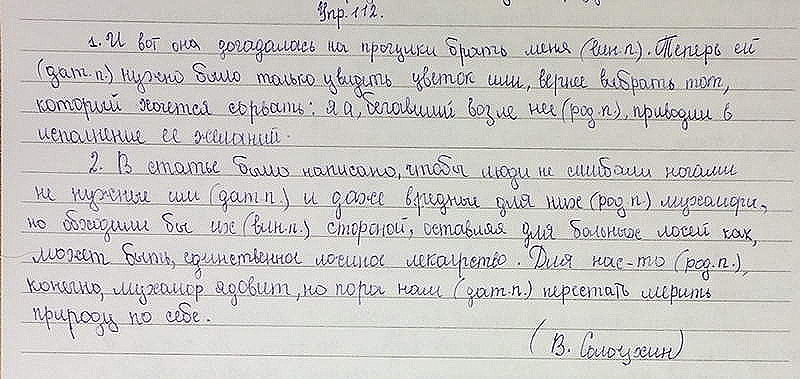 Упр. 112.
1. И вот она догадалась на прогулки брать меня (вин.п.). Теперь ей
(дат.п.) нужно было только увидеть цветок или, вернее выбрать тот,
который хочется сорвать: я а, бегавший возле нее (род.п.), приводил в
исполнение ее желаний.
2. В статье было написано, чтобы люди не сшибали ногами
не нужные им (дат.п.) и даже вредные для них (род.п.) мухоморы,
но обходили бы их (вин.п.) стороной, оставляя для больных лосей как,
может быть, единственное лосиное лекарство. Для нас-то (род.п.),
конечно, мухомор ядовит, но пора нам (дат.п.) перестать мерить
природу по себе.
(В. Солоухин)